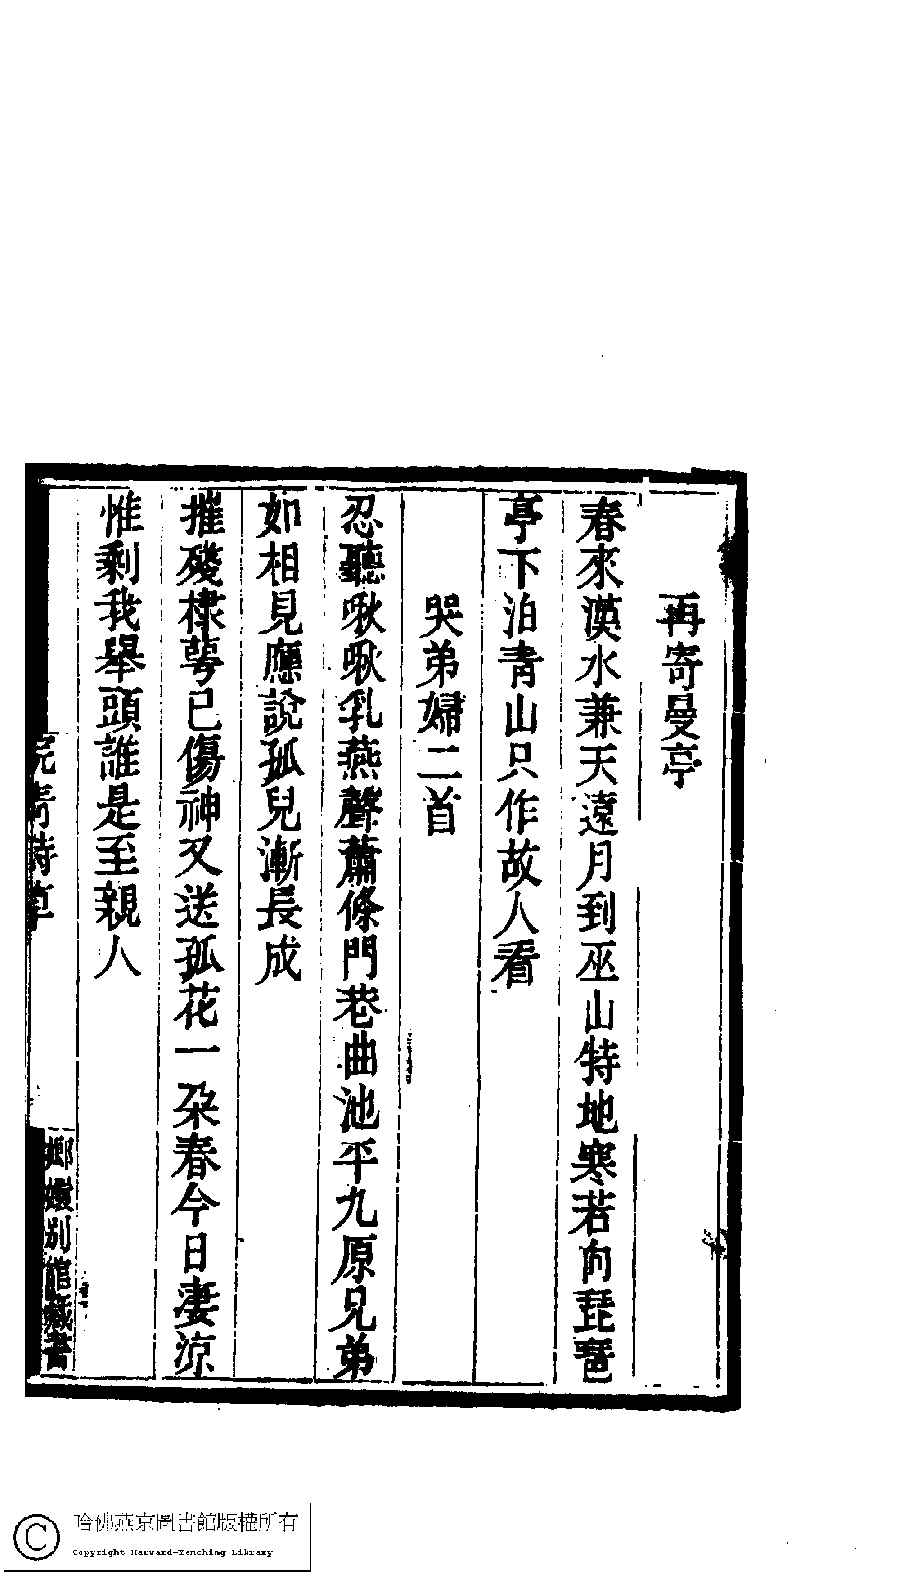 再寄曼亭
春來漢水兼天遠月到巫山特地寒若向琵琶
亭下泊青山只作故人看
哭弟婦二首
忍聽啾啾乳燕聲蕭條門巷曲池平九原兄弟
如相見應說孤兒漸長成
摧殘棣萼已傷神又送孤花一朶春今日凄涼
惟剩我舉頭誰是至親人
青詩草
嫏嬛別館藏書
哈佛燕京圖書館版權所有
Copyright Harvard-Yenching Library